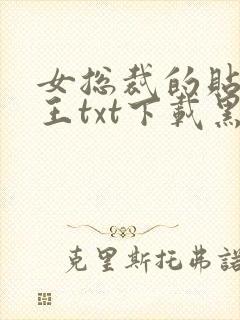 女总裁的貼
王txt下載黑
克里斯托弗諾